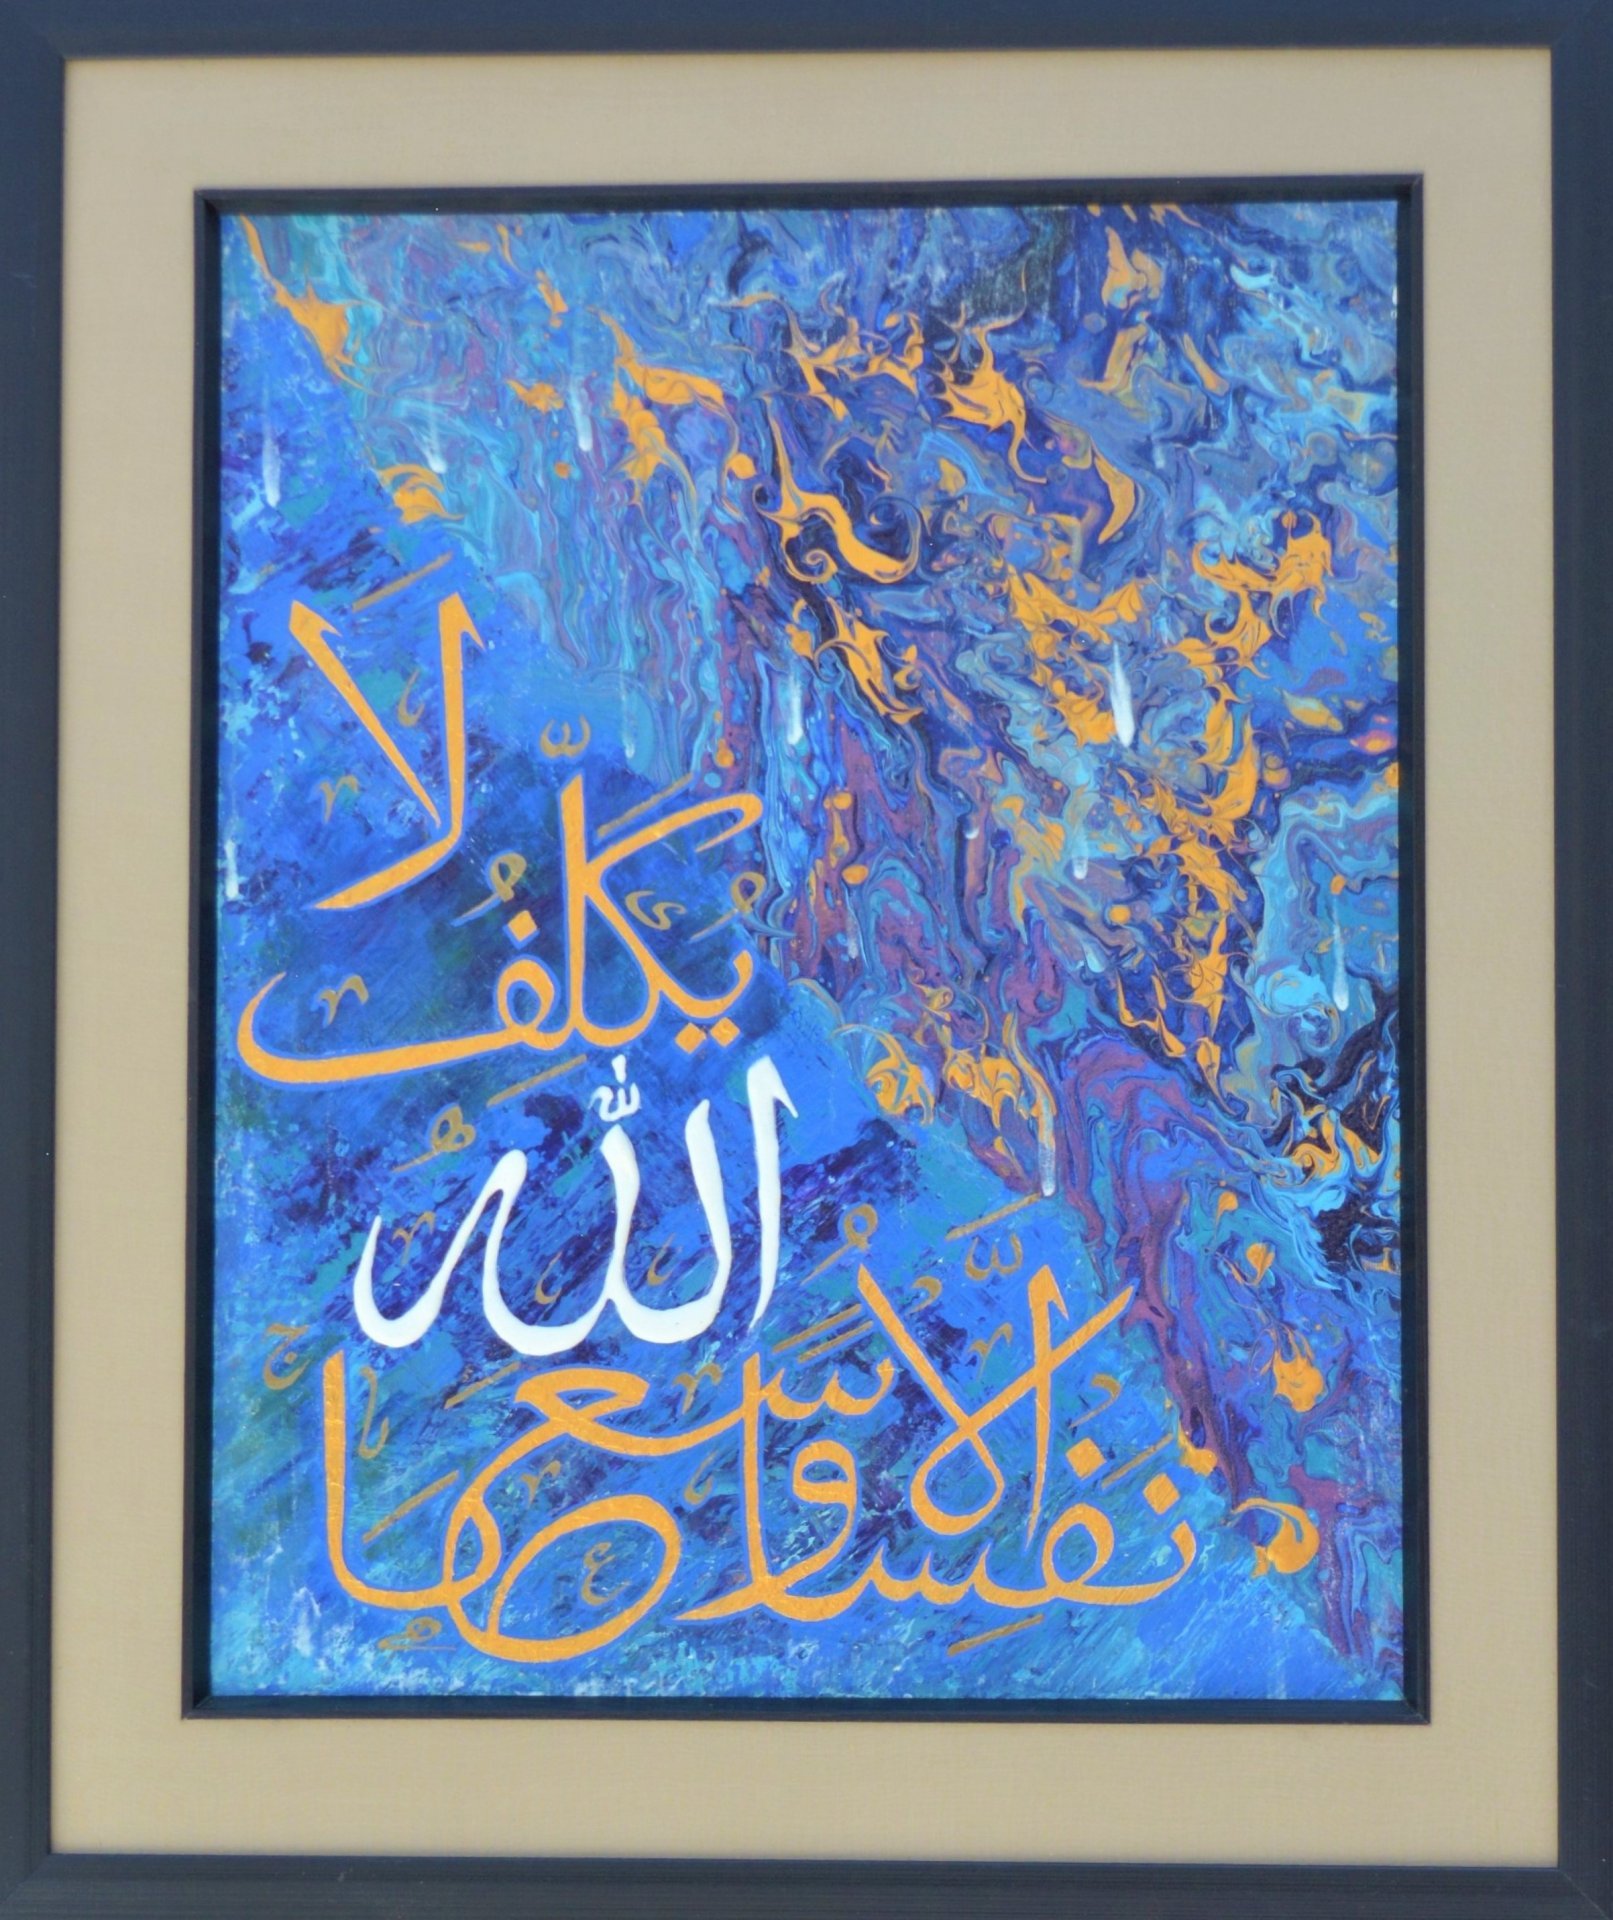 لَا
يُكَلِّفُ
اللّٰهُ
نَفْسًا إِلَّا وُسْعَهَا